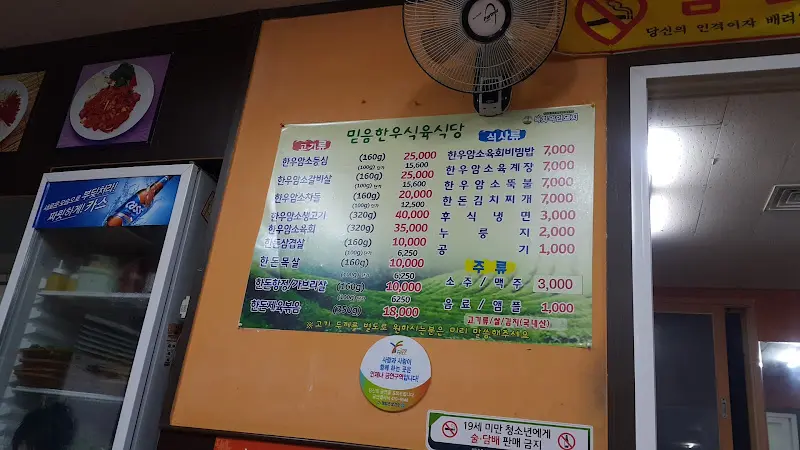 당신의 인격이자 배려
믿음한우식육식당
고기류
한우암소등심 (160g) 25,000
(100g) 단가 15,600
한우암소갈비살 (160g) 25,000
(100g) 단가 15,600
한우암소차돌 (160g) 20,000
(100g) 단가 12,500
한우암소생고기 (320g) 40,000
한우암소육회 (320g) 35,000
한돈삼겹살 (160g) 10,000
(100g) 단가 6,250
한돈목살 (160g) 10,000
(100g) 단가 6,250
한돈항정/가브리살 (160g) 10,000
(100g) 단가 6250
한돈제육볶음 (350g) 18,000
식사류
한우암소육회비빔밥 7,000
한우암소육계장 7,000
한우암소뚝불 7,000
한돈김치찌개 7,000
후식냉면 3,000
누룽지 2,000
공기 1,000
주류
소주/맥주 3,000
음료/앰플 1,000
고기류/쌀/김치(국내산)
※고기 두께를 별도로 원하시는분은 미리 말씀해주세요
짜릿하게! 카스
Cass
사람과 사람이
함께 하는 곳은
언제나 금연구역입니다!
19세 미만 청소년에게
술·담배 판매 금지